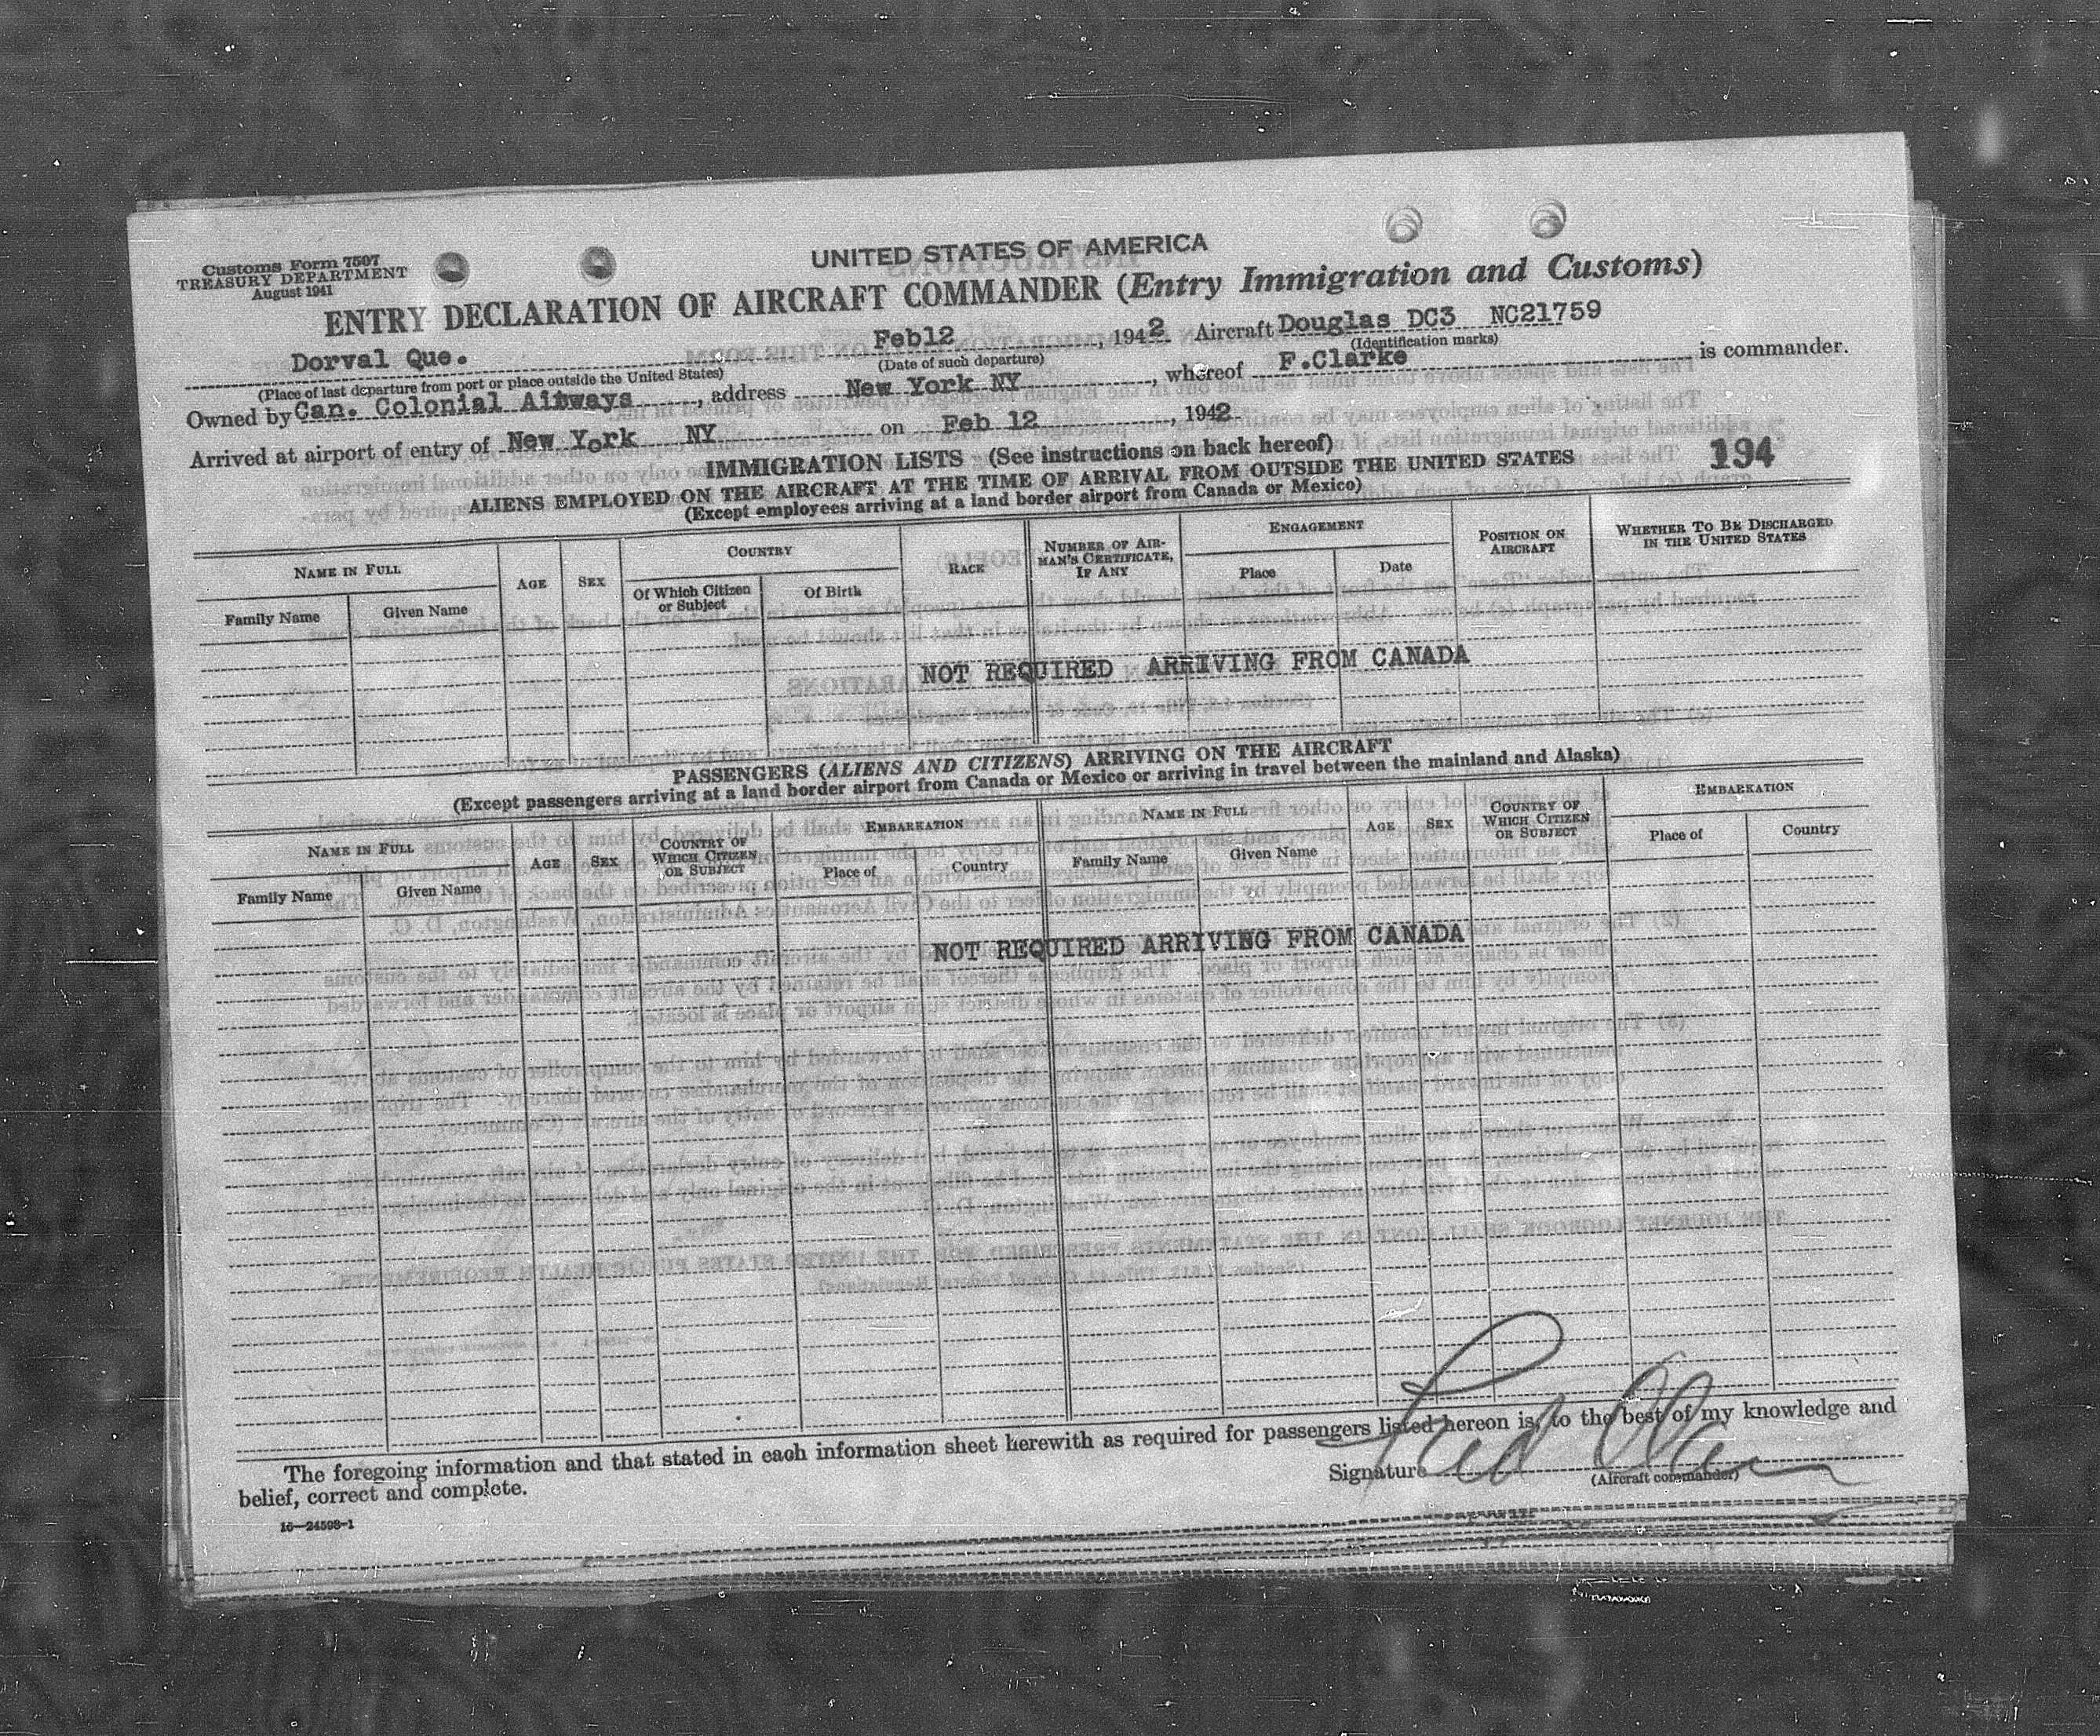 Customs Form 7507
TREASURY DEPARTMENT
August 1941
UNITED STATES OF AMERICA
ENTRY DECLARATION OF AIRCRAFT COMMANDER (Entry Immigration and Customs)
Dorval Que. Feb12, 1942. Aircraft Douglas DC3 NC21759
(Place of last departure from port or place outside the United States) (Date of such departure) (Identification marks)
Owned by Can. Colonial Aitways, address New York NY, whereof F.Clarke is commander.
Arrived at airport of entry of New York NY on Feb 12, 1942
IMMIGRATION LISTS (See instructions on back hereof) 194
ALIENS EMPLOYED ON THE AIRCRAFT AT THE TIME OF ARRIVAL FROM OUTSIDE THE UNITED STATES
(Except employees arriving at a land border airport from Canada or Mexico)
NAME IN FULL AGE SEX COUNTRY RACE NUMBER OF AIRMAN'S CERTIFICATE, IF ANY ENGAGEMENT POSITION ON AIRCRAFT WHETHER TO BE DISCHARGED IN THE UNITED STATES
Family Name Given Name Of Which Citizen or Subject Of Birth Place Date
NOT REQUIRED ARRIVING FROM CANADA
PASSENGERS (ALIENS AND CITIZENS) ARRIVING ON THE AIRCRAFT
(Except passengers arriving at a land border airport from Canada or Mexico or arriving in travel between the mainland and Alaska)
NAME IN FULL AGE SEX COUNTRY OF WHICH CITIZEN OR SUBJECT EMBARKATION NAME IN FULL AGE SEX COUNTRY OF WHICH CITIZEN OR SUBJECT EMBARKATION
Family Name Given Name Place of Country Family Name Given Name Place of Country
NOT REQUIRED ARRIVING FROM CANADA
The foregoing information and that stated in each information sheet herewith as required for passengers listed hereon is, to the best of my knowledge and
belief, correct and complete.
Signature
(Aircraft commander)
16—24598-1